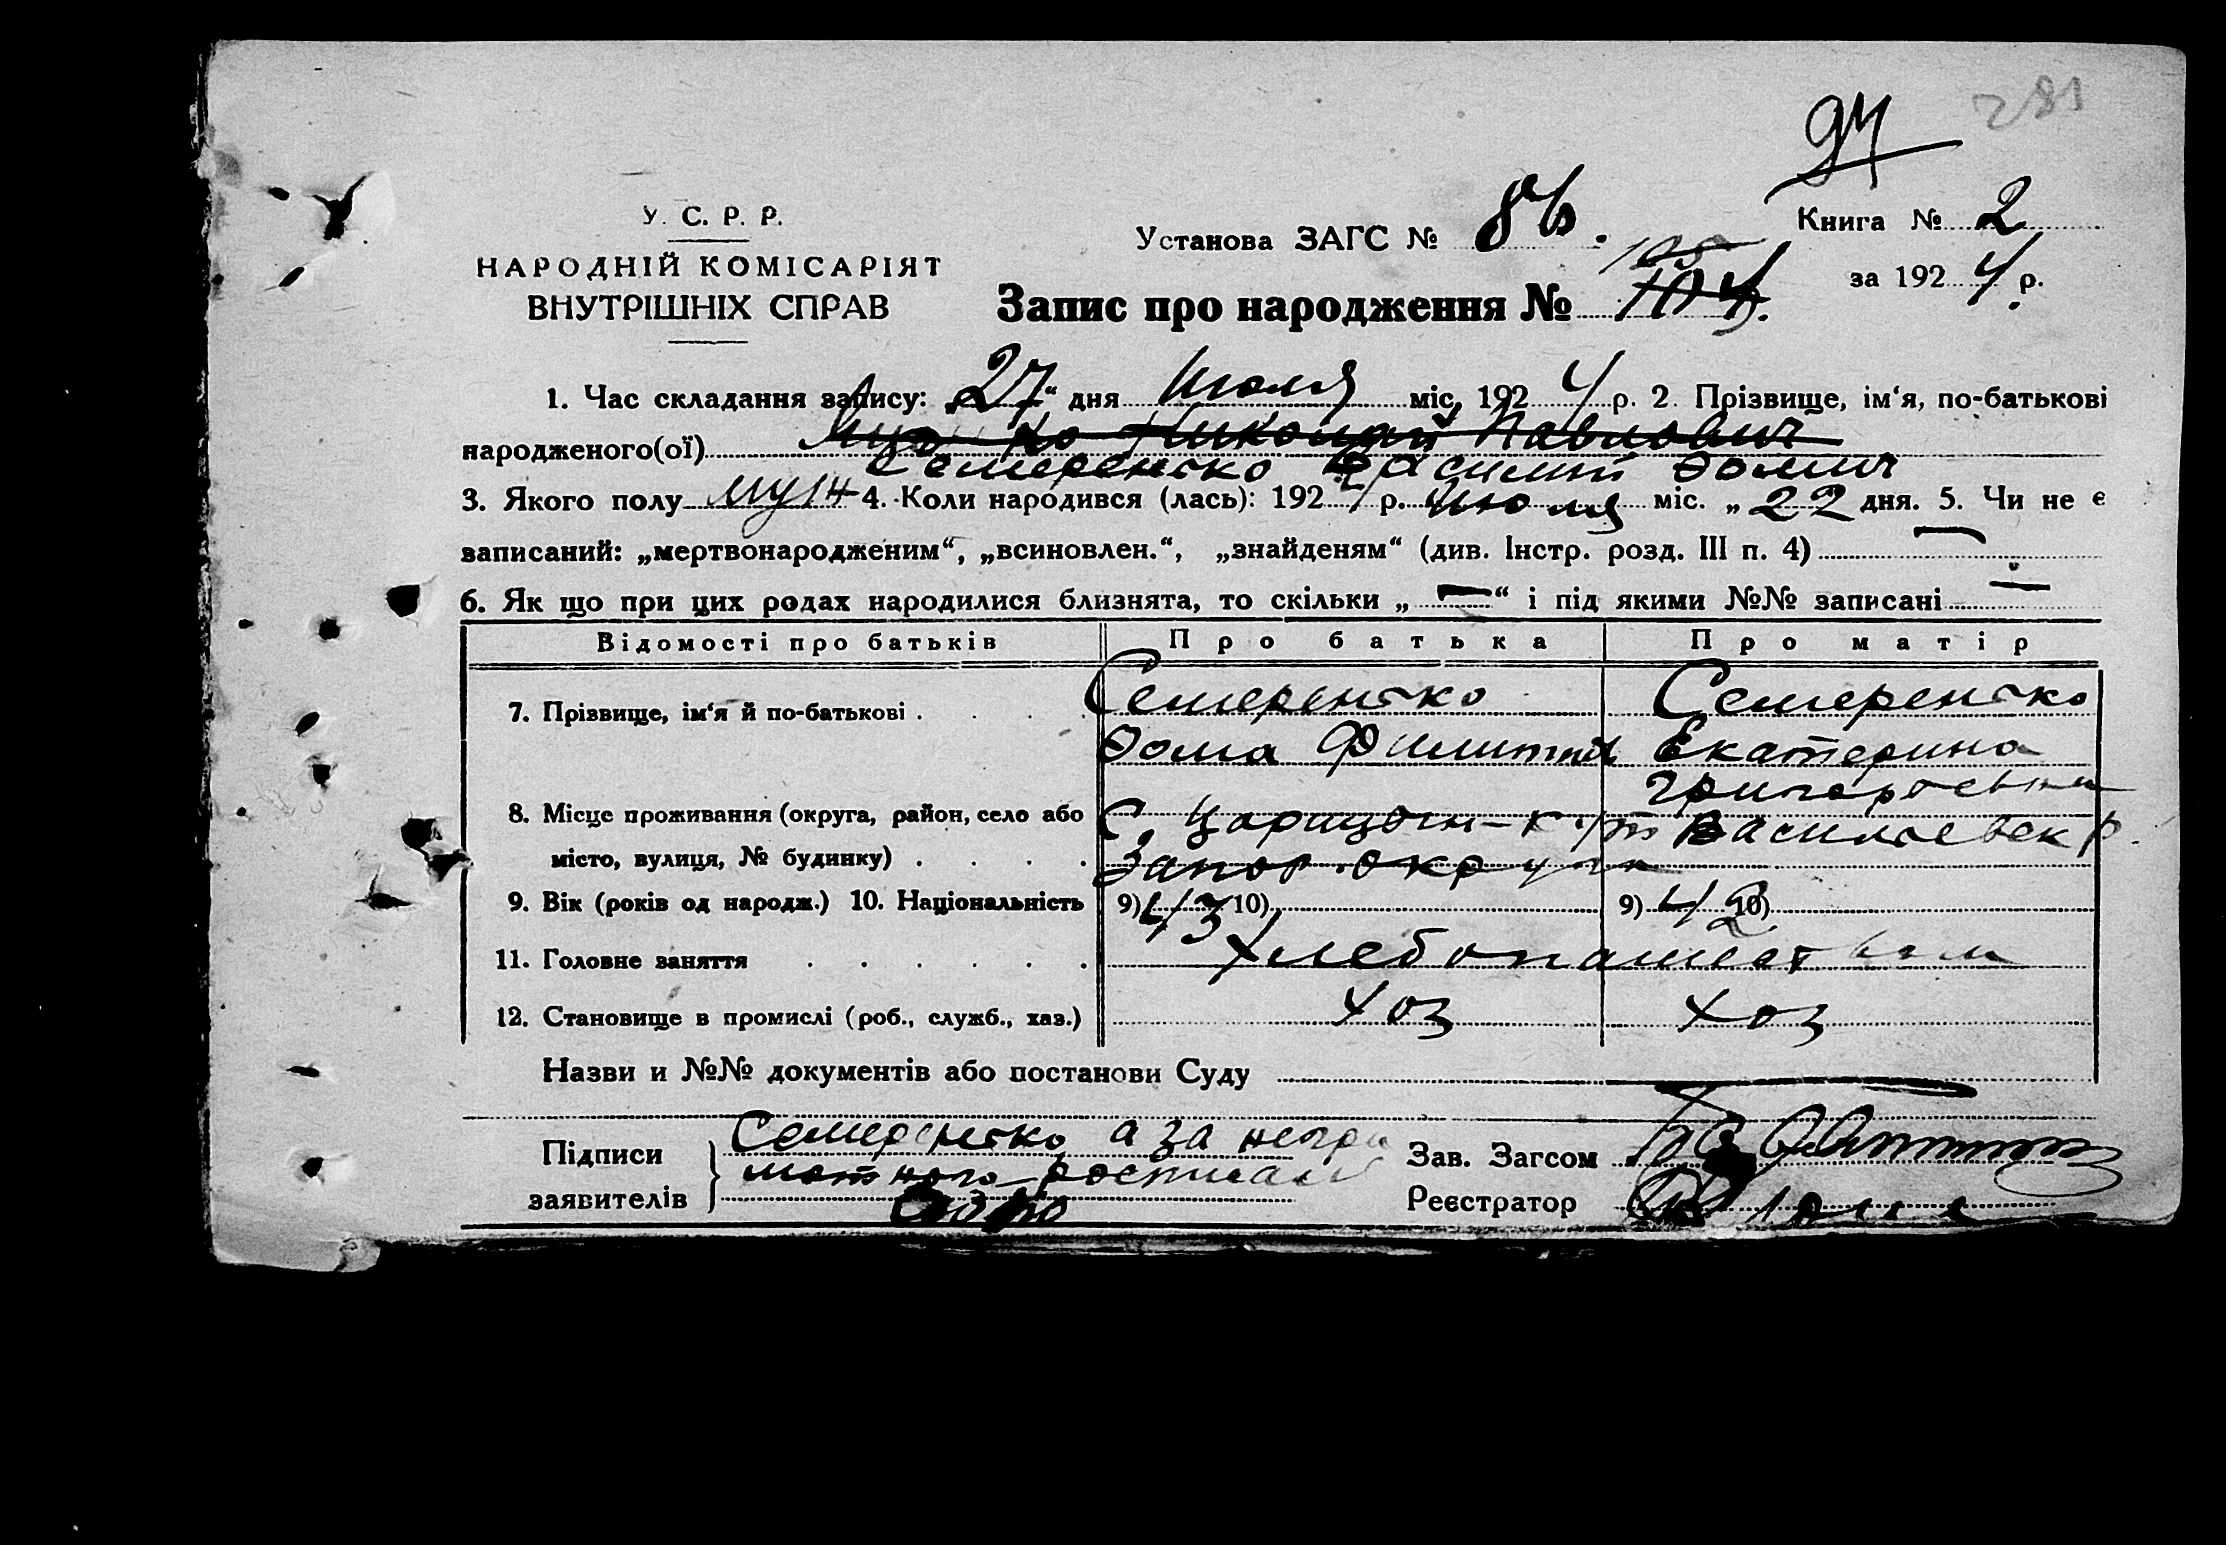 281
94
У. С. Р. Р.
НАРОДНІЙ КОМІСАРІЯТ
ВНУТРІШНІХ СПРАВ
Установа ЗАГС № 86.
Книга № 2
за 1924 р.
Запис про народження №
1. Час складання запису: „27“ дня Июля міс. 1924 р. 2. Прізвище, ім‘я, по-батькові
народженого(ої) Николай Павлович
Семеренско Василий Фомич
3. Якого полу муж 4. Коли народився (лась): 1924 р. Июля міс. „22 дня. 5. Чи не є
записаний: „мертвонародженим“, „всиновлен.“, „знайденям“ (див. Інстр. розд. III п. 4) —
6. Як що при цих родах народилися близнята, то скільки „—“ і під якими №№ записані —
Відомості про батьків Про батька Про матір
7. Прізвище, ім‘я й по-батькові . Семеренско Семеренско
Фома Екатерина
Григорьевна
8. Місце проживання (округа, район, село або С. Царицын-Кут Васильевск р.
місто, вулиця, № будинку) . Запор. округи
9. Вік (років од народж.) 10. Національність 9) 43 10) 9) 42 10)
11. Головне заняття . Хлебопашеством
12. Становище в промислі (роб., служб., хаз.) Хоз Хоз
Назви и №№ документів або постанови Суду
Підписи Семеренско а за негра
заявителів мотного росписал
Зав. Загсом
Реєстратор